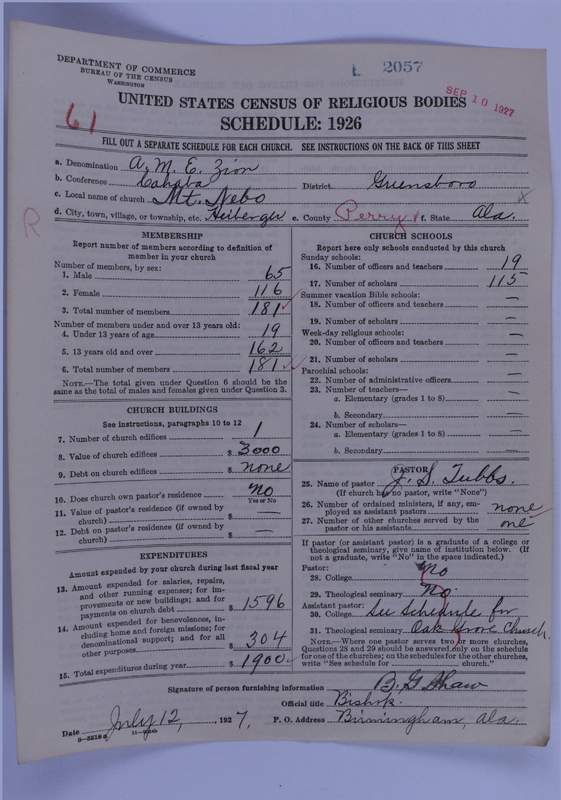 DEPARTMENT OF COMMERCE
BUREAU OF THE CENSUS
WASHINGTON
2057
SEP 10 1927
61
UNITED STATES CENSUS OF RELIGIOUS BODIES
SCHEDULE: 1926
FILL OUT A SEPARATE SCHEDULE FOR EACH CHURCH. SEE INSTRUCTIONS ON THE BACK OF THIS SHEET
a. Denomination A. M. E. Zion
b. Conference Cahaba District Greensboro
c. Local name of church Mt. Nebo
d. City, town, village, or township, etc. Heiberger e. County Perry f. State Ala.
R
X
MEMBERSHIP
Report number of members according to definition of
member in your church
Number of members, by sex:
1. Male 65
2. Female 116
3. Total number of members 181
Number of members under and over 13 years old:
4. Under 13 years of age 19
5. 13 years old and over 162
6. Total number of members 181
NOTE.—The total given under Question 6 should be the
same as the total of males and females given under Question 3.
CHURCH BUILDINGS
See instructions, paragraphs 10 to 12
7. Number of church edifices 1
8. Value of church edifices $ 3000
9. Debt on church edifices $ none
10. Does church own pastor's residence No
Yes or No
11. Value of pastor's residence (if owned by
church) $ —
12. Debt on pastor's residence (if owned by
church) $ —
EXPENDITURES
Amount expended by your church during last fiscal year
13. Amount expended for salaries, repairs,
and other running expenses; for im-
provements or new buildings; and for
payments on church debt $ 1596
14. Amount expended for benevolences, in-
cluding home and foreign missions; for
denominational support; and for all
other purposes $ 304
15. Total expenditures during year $ 1900
CHURCH SCHOOLS
Report here only schools conducted by this church
Sunday schools:
16. Number of officers and teachers 19
17. Number of scholars 115
Summer vacation Bible schools:
18. Number of officers and teachers —
19. Number of scholars —
Week-day religious schools:
20. Number of officers and teachers —
21. Number of scholars —
Parochial schools:
22. Number of administrative officers —
23. Number of teachers—
a. Elementary (grades 1 to 8) —
b. Secondary —
24. Number of scholars—
a. Elementary (grades 1 to 8) —
b. Secondary —
PASTOR
25. Name of pastor J. S. Tubbs.
(If church has no pastor, write "None")
26. Number of ordained ministers, if any, em-
ployed as assistant pastors none
27. Number of other churches served by the
pastor or his assistants one
If pastor (or assistant pastor) is a graduate of a college or
theological seminary, give name of institution below. (If
not a graduate, write "No" in the space indicated.)
Pastor:
28. College No
29. Theological seminary No.
Assistant pastor:
30. College See Schedule for
31. Theological seminary Oak Grove Church.
NOTE.—Where one pastor serves two or more churches,
Questions 28 and 29 should be answered only on the schedule
for one of the churches; on the schedules for the other churches,
write "See schedule for church."
Signature of person furnishing information B. G. Shaw
Official title Bishop.
Date July 12, 1927. P. O. Address Birmingham, Ala.